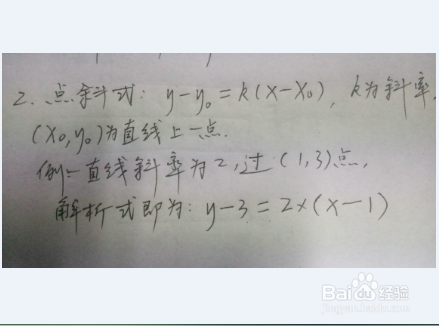 2. 点斜式: y-y₀=k(x-x₀), k为斜率.
(x₀,y₀)为直线上一点.
例:一直线斜率为2,过(1,3)点,
解析式即为: y-3=2×(x-1)
Baidu经验
jingyan.baidu.com